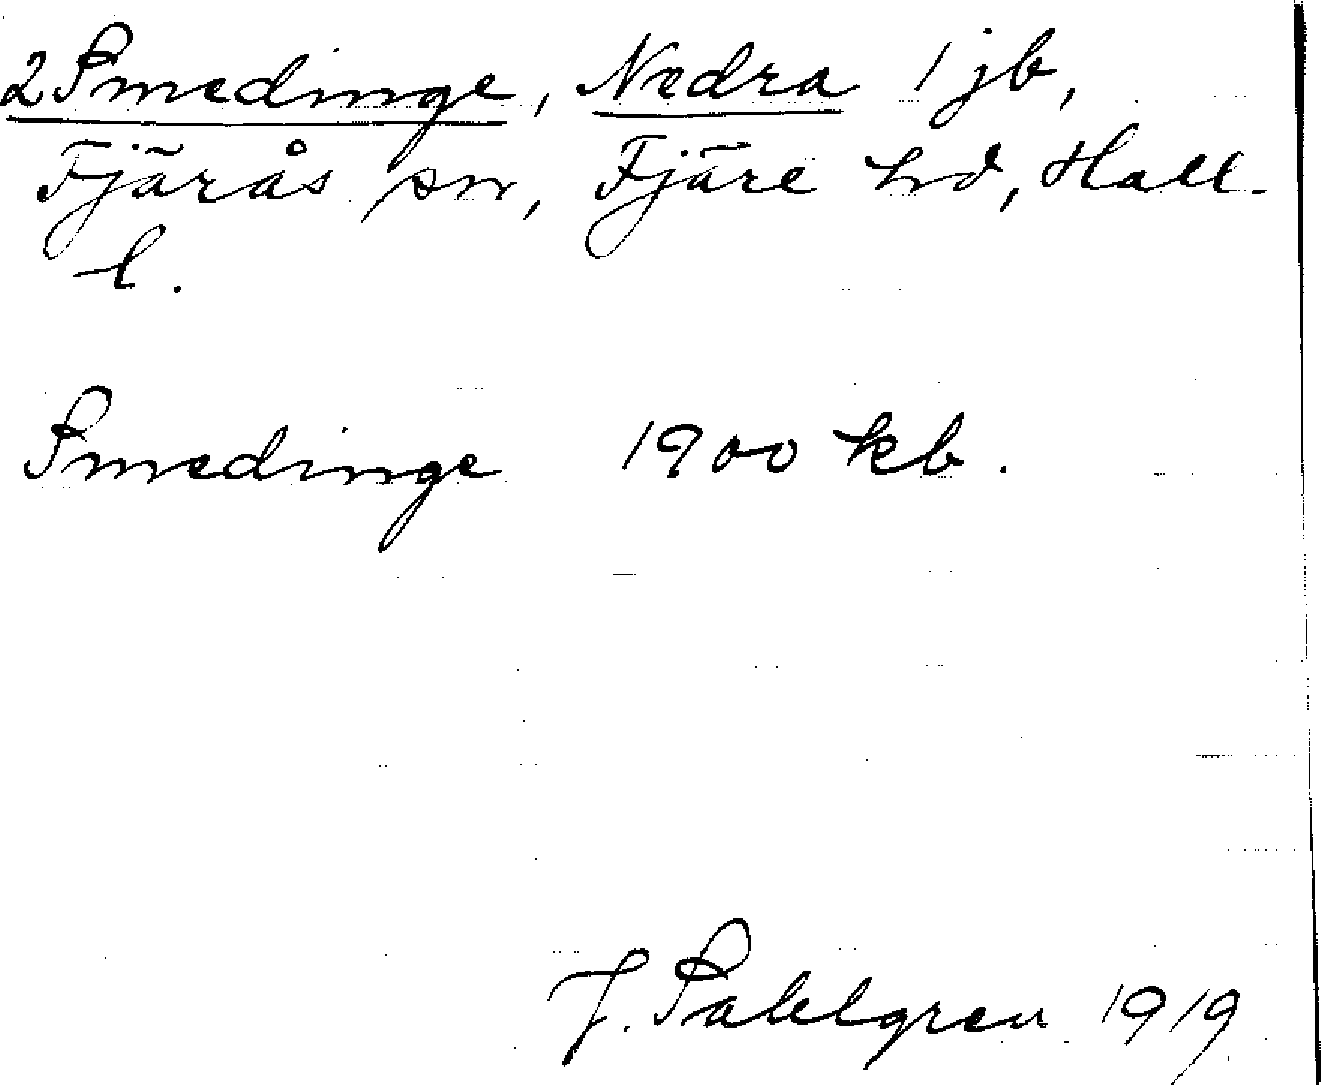 2 Smedinge, Nedra 1 jb,
Fjärås sn, Fjäre hd, Hall.
l.
Smedinge 1900 kb.
J. Sahlgren 1919